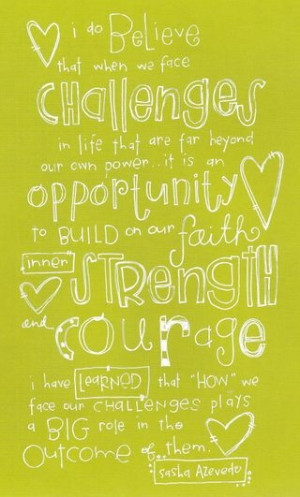 i do Believe
that when we face
CHallengeS
in life that are far beyond
our own power... it is an
opportunity
to BUILD on our faith
inner STRength
and
courage
i have LeaRNeD that "HOW" we
face our CHALLENGES plays
a BIG role in the
OUTCOME of.. them.
sasha Azevedo